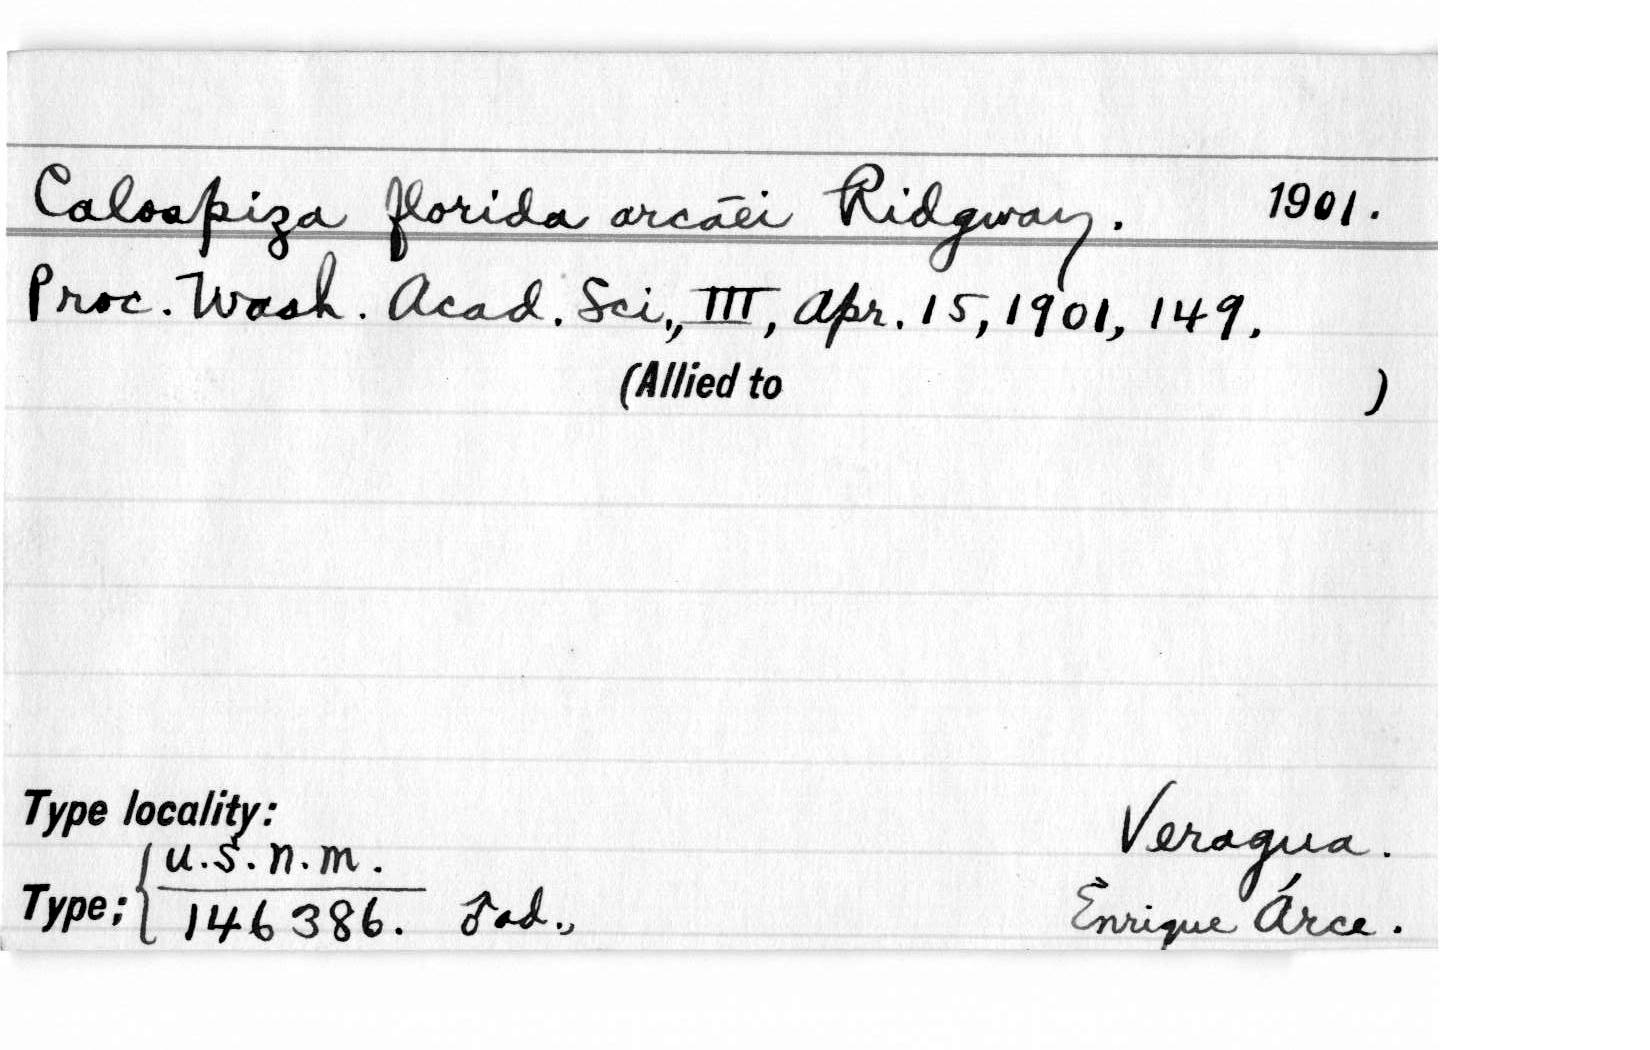 Calospiza florida arcæi Ridgway. 1901.
Proc. Wash. Acad. Sci., III, Apr. 15, 1901, 149.
(Allied to )
Type locality: Veragua.
Type: { U.S.N.M. 146386. ♂ad., Enrique Árce.